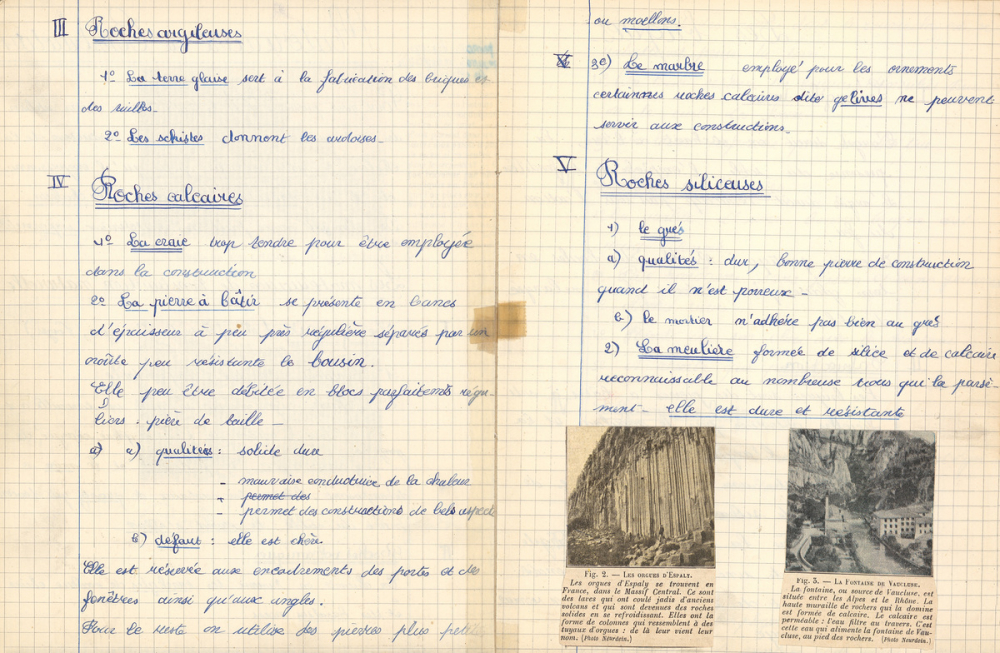 III Roches argileuses
1º La terre glaise sert à la fabrication des briques et
des tuiles.
2º Les schistes donnent les ardoises.
IV Roches calcaires
1º La craie trop tendre pour être employée
dans la construction
2º La pierre à bâtir se présente en bancs
d'épaisseur à peu près régulière séparés par un
croûte peu résistante le bousin.
Elle peu être débitée en blocs parfaitements régu-
liers. pière de taille _
a) qualitées : solide dure
- mauvaise conductrice de la chaleur
- permet des
- permet des constructions de bels aspect
b) défaut : elle est chère.
Elle est réservée aux encadrements des portes et des
fenêtres ainsi qu'aux angles.
Pour le reste on utilise des pierres plus petites
ou moellons.
3º) Le marbre employé pour les ornements
certainnes roches calcaires dites gelives ne peuvent
servir aux constructions_
V Roches siliceuses
1) le grés
a) qualités : dur, bonne pierre de construction
quand il n'est porreux -
b) le mortier n'adhère pas bien au grés
2) La meulière formée de silice et de calcaire
reconnaissable au nombreuse trous qui la parsè-
ment - elle est dure et résistante
Fig. 2. — LES ORGUES D'ESPALY.
Les orgues d'Espaly se trouvent en
France, dans le Massif Central. Ce sont
des laves qui ont coulé jadis d'anciens
volcans et qui sont devenues des roches
solides en se refroidissant. Elles ont la
forme de colonnes qui ressemblent à des
tuyaux d'orgues : de là leur vient leur
nom. (Photo Neurdein.)
Fig. 3. — LA FONTAINE DE VAUCLUSE.
La fontaine, ou source de Vaucluse, est
située entre les Alpes et le Rhône. La
haute muraille de rochers qui la domine
est formée de calcaire. Le calcaire est
perméable : l'eau filtre au travers. C'est
cette eau qui alimente la fontaine de Vau-
cluse, au pied des rochers. (Photo Neurdein.)